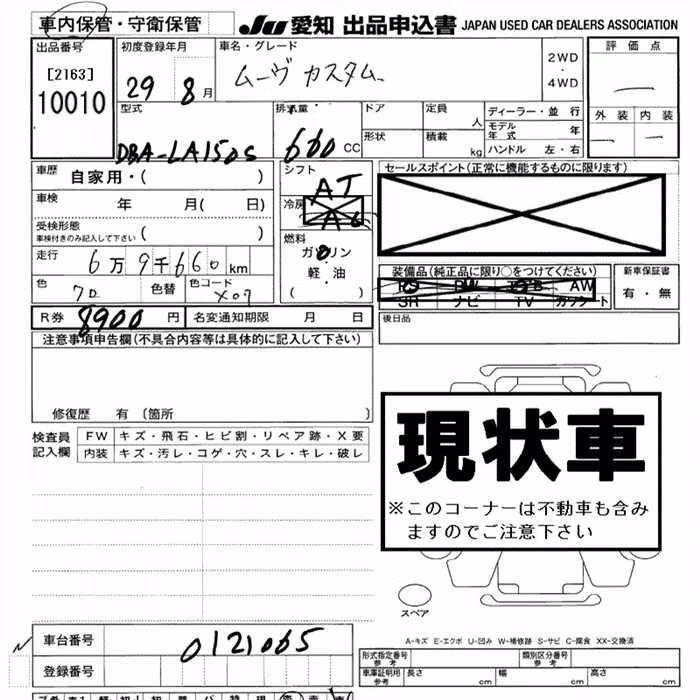 車内保管・守衛保管
JU 愛知 出品申込書 JAPAN USED CAR DEALERS ASSOCIATION
出品番号
[2163]
10010
初度登録年月
29 8月
車名・グレード
ムーヴ カスタム
2WD
・
4WD
評価点
外装 内装
型式
DBA-LA150S
排気量
660 CC
ドア
形状
定員
人
積載
kg
ディーラー・並行
モデル年式 年
ハンドル 左・右
車歴
自家用・( )
車検
年 月( 日)
受検形態
車検付きのみ記入して下さい ( )
走行
6万9千660km
色
色替
色コード
X07
シフト
AT
冷房
燃料
ガソリン
軽・油
( )
セールスポイント(正常に機能するものに限ります)
装備品(純正品に限り○をつけてください)
AW
SR ナビ TV カワシート
新車保証書
有・無
R券 8900円
名変通知期限 月 日
後日品
注意事項申告欄(不具合内容等は具体的に記入して下さい)
修復歴 有〔箇所 〕
検査員
記入欄
FW キズ・飛石・ヒビ割・リペア跡・X要
内装 キズ・汚レ・コゲ・穴・スレ・キレ・破レ
現状車
※このコーナーは不動車も含み
ますのでご注意下さい
スペア
A-キズ E-エクボ U-凹み W-補修跡 S-サビ C-腐食 XX-交換済
車台番号
0121065
登録番号
形式指定番号
参考
類別区分番号
参考
車庫証明用
参考
長さ cm
幅 cm
高さ cm